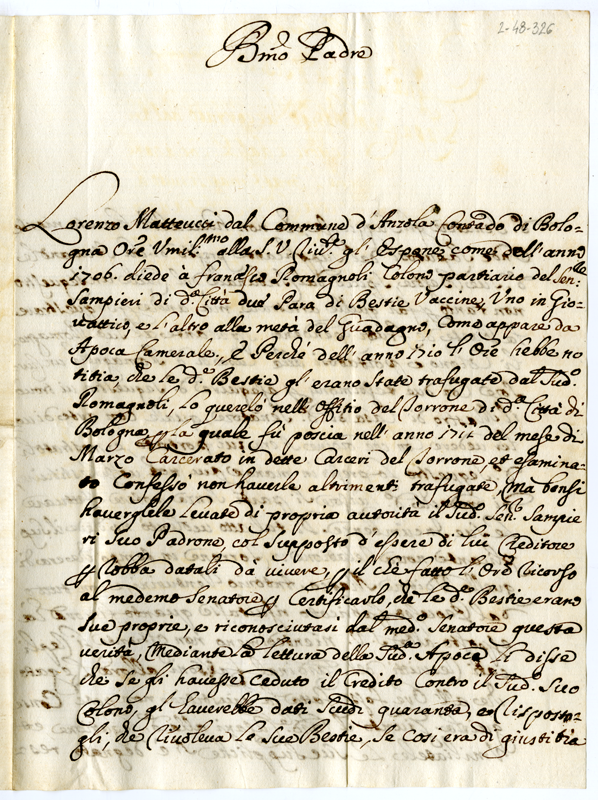 2-48-326
Bmo Padre
Lorenzo Matteucci dal Commune d'Anzola Contado di Bolo-
gna Ore Umil.mo alla S. V. Riv.te gl'espone, come dell'anno
1706 diede à Fran.co Romagnoli Colono partiario del Sen.
Sampieri di d.a Città due Para di Bestie Vaccine, Uno in Gio-
uattico, e l'altro alla metà del Guadagno, Come appare da
Apoca Camerale, e Perche dell'anno 1710 l'Ore hebbe no
titia, che le d.e Bestie gl'erano State trafugate dal Sud.o
Romagnoli, lo querelò nell'Offitio del Torrone di d.a Città di
Bologna, p la quale fù poscia nell'anno 1711 del mese di
Marzo Carcerato in dette Carceri del Torrone, et esamina-
to Confessò non haverle altrimenti trafugate, Ma bensi
havergliele levate di propria autorità il Sud.o Sen.e Sampie
ri Suo Padrone, col Supposto d'essere di lui Creditore
p Robba datali da vivere, p il che fatto l'Ore Ricorso
al medemo Senatore p Certificarlo, che le d.e Bestie erano
Sue proprie, e riconosciutasi dal med.o Senatore questa
verità, Mediante la lettura della Sud.a Apoca li disse
che Se gli havesse Ceduto il Credito Contro il Sud.o Suo
Colono, gl'haverebbe dati Scudi quaranta, e Risposto-
gli, che Rivoleva le Sue Bestie, Se Cosi era di giustitia